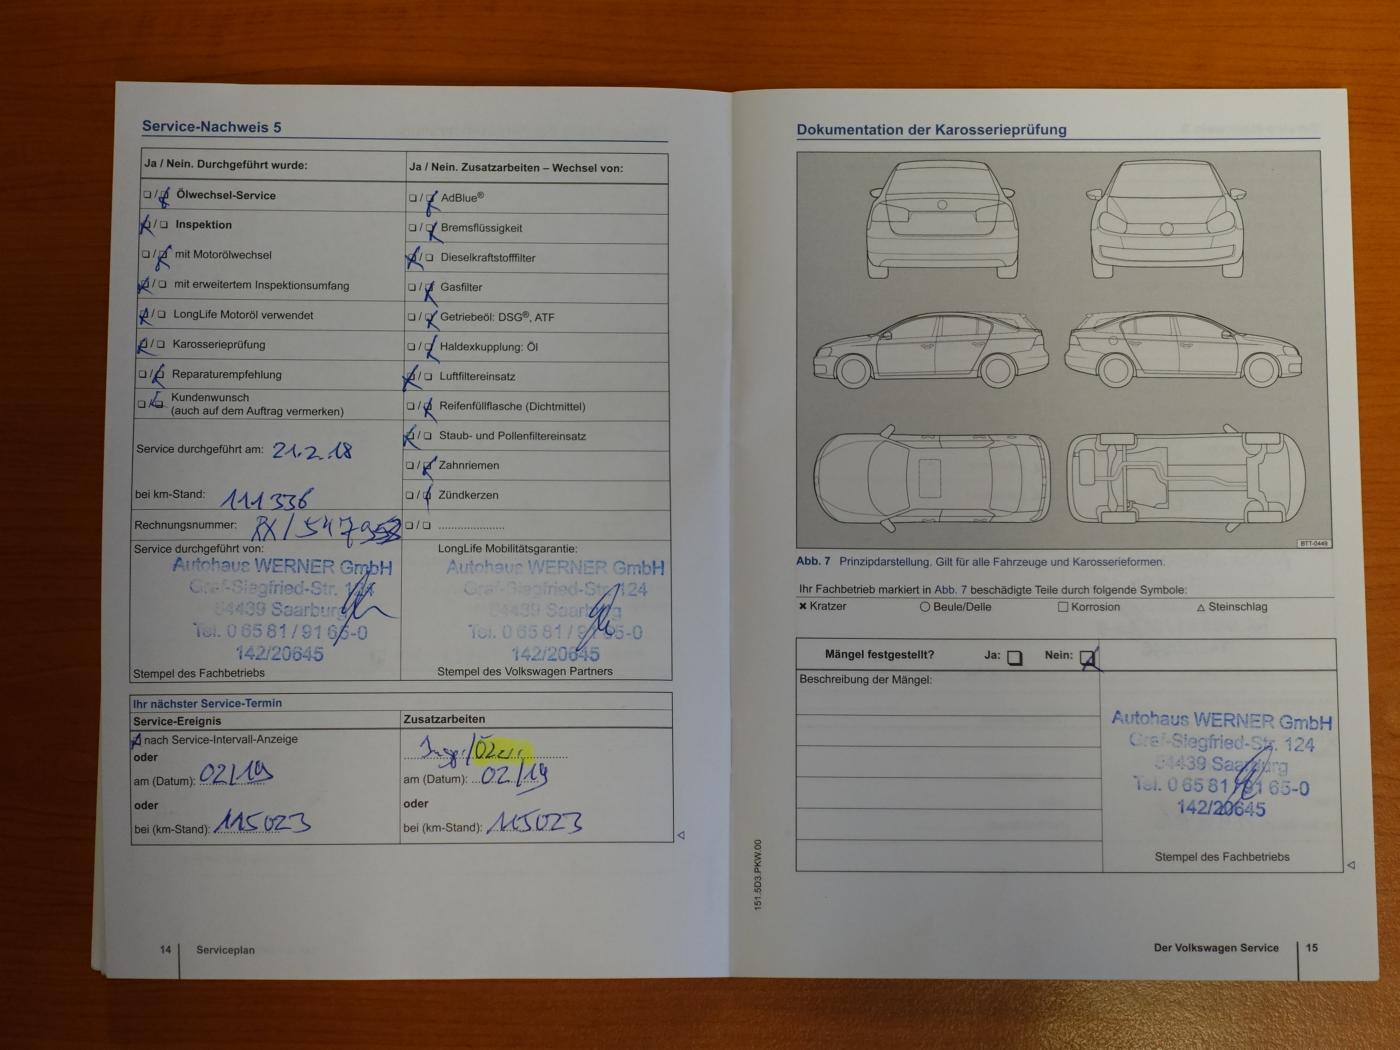 Service-Nachweis 5
Ja / Nein. Durchgeführt wurde:
Ölwechsel-Service
Inspektion
mit Motorölwechsel
mit erweitertem Inspektionsumfang
LongLife Motoröl verwendet
Karosserieprüfung
Reparaturempfehlung
Kundenwunsch
(auch auf dem Auftrag vermerken)
Service durchgeführt am: 21.2.18
bei km-Stand: 111336
Rechnungsnummer:
Service durchgeführt von:
Autohaus WERNER GmbH
Graf-Siegfried-Str. 124
54439 Saarburg
Tel. 0 65 81 / 91 65-0
142/20645
Stempel des Fachbetriebs
Ja / Nein. Zusatzarbeiten – Wechsel von:
AdBlue®
Bremsflüssigkeit
Dieselkraftstofffilter
Gasfilter
Getriebeöl: DSG®, ATF
Haldexkupplung: Öl
Luftfiltereinsatz
Reifenfüllflasche (Dichtmittel)
Staub- und Pollenfiltereinsatz
Zahnriemen
Zündkerzen
LongLife Mobilitätsgarantie:
Autohaus WERNER GmbH
Graf-Siegfried-Str. 124
54439 Saarburg
Tel. 0 65 81 / 91 65-0
142/20645
Stempel des Volkswagen Partners
Ihr nächster Service-Termin
Service-Ereignis
nach Service-Intervall-Anzeige
oder
am (Datum): 02/19
oder
bei (km-Stand): 115023
Zusatzarbeiten
am (Datum): 02/19
oder
bei (km-Stand): 115023
14 Serviceplan
Dokumentation der Karosserieprüfung
BTT-0449
Abb. 7 Prinzipdarstellung. Gilt für alle Fahrzeuge und Karosserieformen.
Ihr Fachbetrieb markiert in Abb. 7 beschädigte Teile durch folgende Symbole:
✖ Kratzer ○ Beule/Delle □ Korrosion △ Steinschlag
Mängel festgestellt? Ja: Nein:
Beschreibung der Mängel:
Autohaus WERNER GmbH
Graf-Siegfried-Str. 124
54439 Saarburg
Tel. 0 65 81 / 91 65-0
142/20645
Stempel des Fachbetriebs
151.5D3.PKW.00
Der Volkswagen Service 15